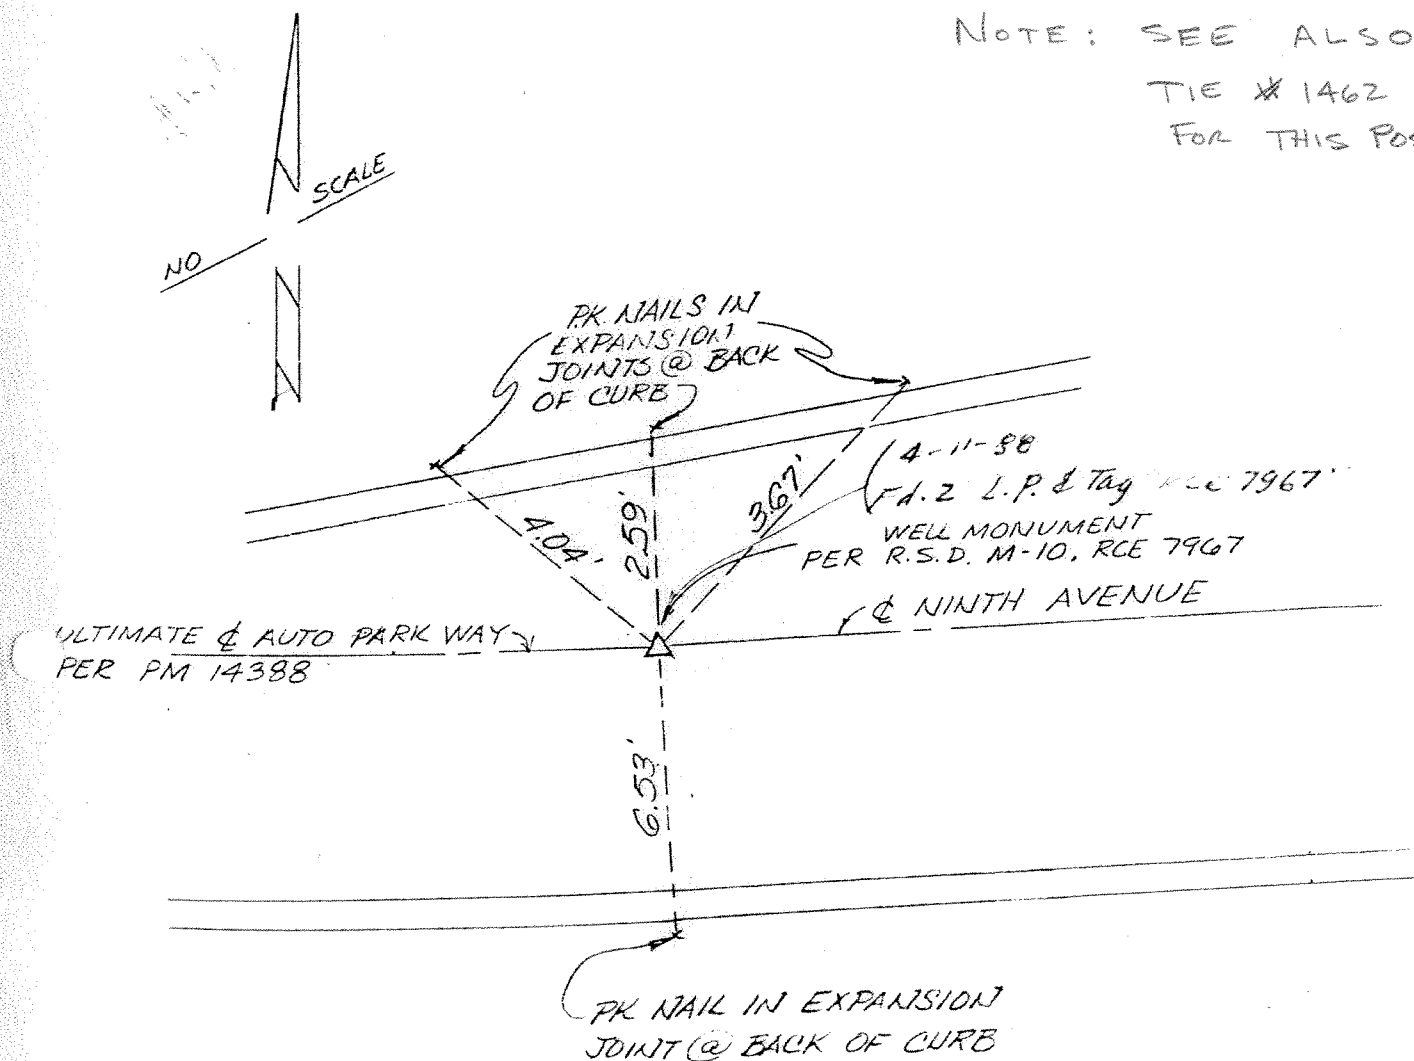 NOTE: SEE ALSO
TIE # 1462
FOR THIS
SCALE
NO
P.K. NAILS IN
EXPANSION
JOINTS @ BACK
OF CURB
4-11-88
Fd. 2 L.P. & Tag 7967
WELL MONUMENT
PER R.S.D. M-10, RCE 7967
4.04'
2.59'
3.67'
℄ NINTH AVENUE
ULTIMATE ℄ AUTO PARK WAY
PER PM 14388
6.53'
PK NAIL IN EXPANSION
JOINT @ BACK OF CURB